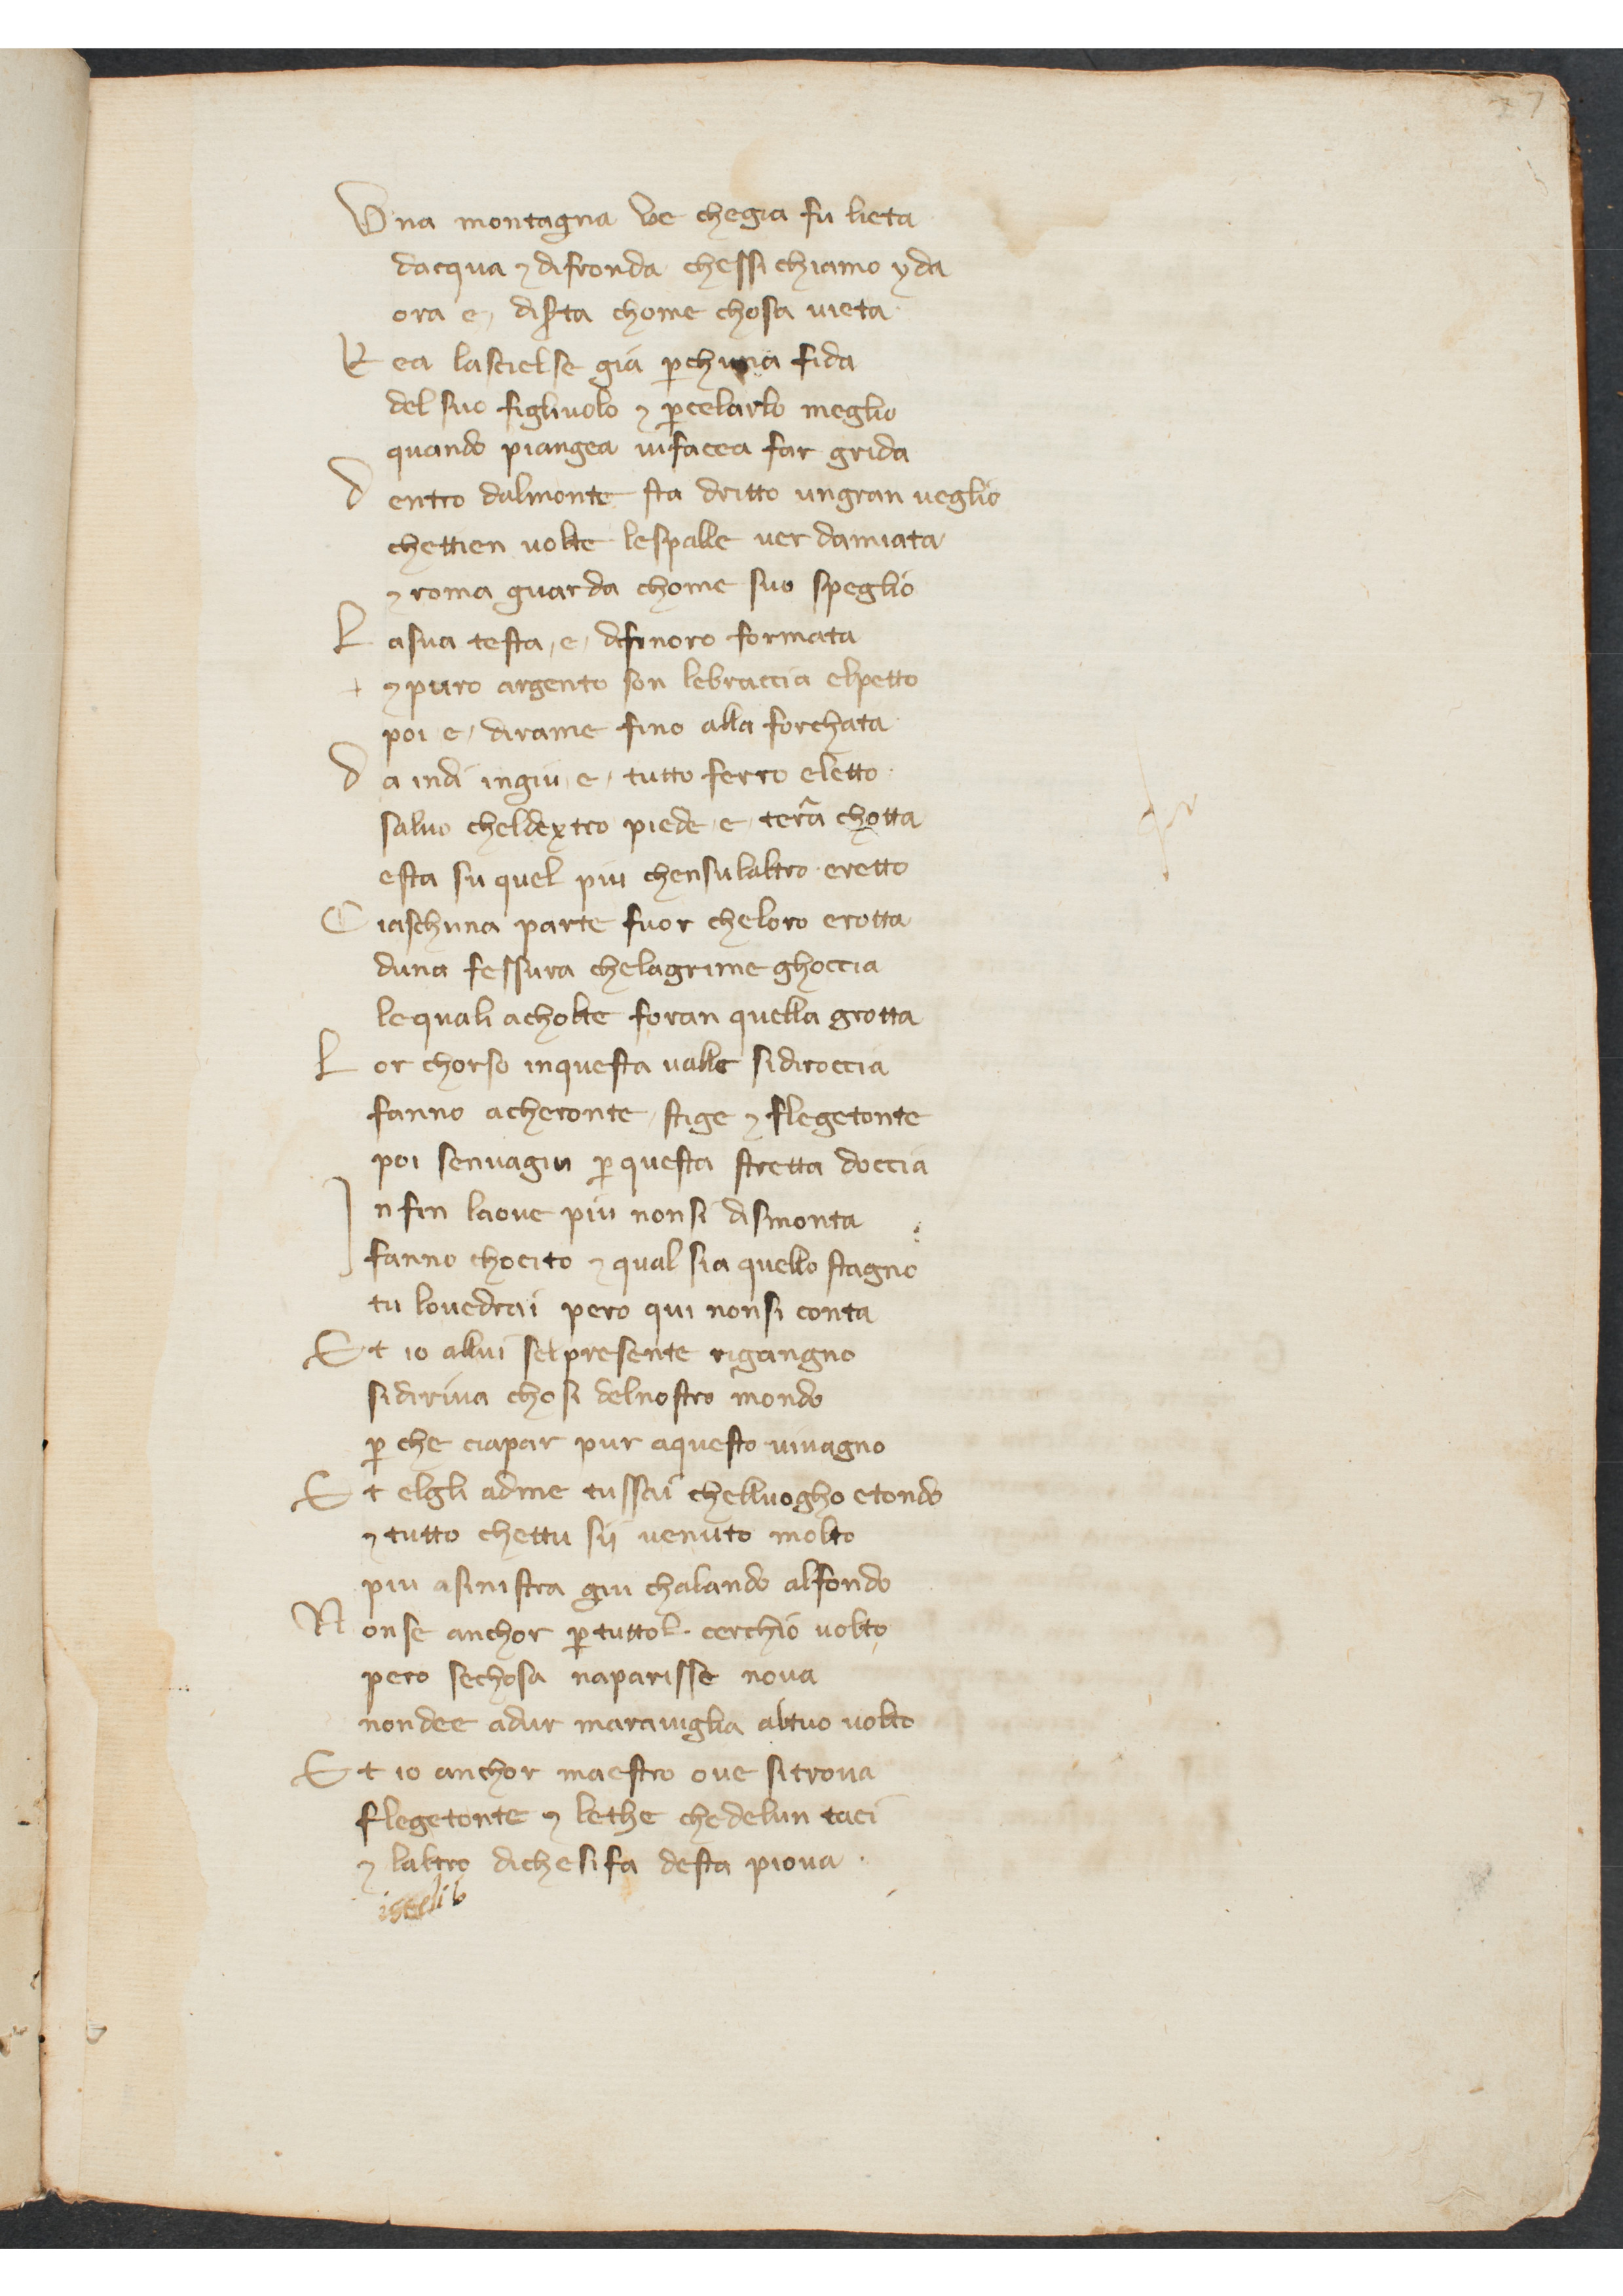 27
Una montagna ve chegia fu lieta
dacqua ⁊ difronda chessi chiamo yda
ora e, disꝑta chome chosa uieta
Rea lascielse gia ꝑchuna fida
del suo figliuolo ⁊ ꝑcelarlo meglio
quando piangea uifacea far grida
Dentro dalmonte sta dritto ungran ueglio
chettien uolte lespalle uer damiata
⁊ roma guarda chome suo speglio
Lasua testa, e, difinoro formata
⁊ puro argento son lebraccia elpetto
poi e, dirame fino alla forchata
Da indi ingiu, e, tutto ferro eletto
saluo cheldextro piede, e, terã chotta
esta su quel piu chensulaltro eretto
Ciaschuna parte fuor cheloro erotta
duna fessura chelagrime ghoccia
lequali acholte foran quella grotta
Lor chorso inquesta ualle sidiroccia
fanno acheronte, stige ⁊ flegetonte
poi senuagiu ꝑ questa stretta doccia
Infin laoue piu nonsi dismonta
fanno chocito ⁊ qual sia quello stagno
tu louedrai pero qui nonsi conta
Et io allui selpresente rigangno
sidiriua chosi delnostro mondo
ꝑ che ciapar pur aquesto uiuagno
Et elgli adme tussai chelluogho etondo
⁊ tutto chettu sij uenuto molto
piu asinistra giu chalando alfondo
Nonse anchor ꝑ tuttol cerchio uolto
pero sechosa naparisse noua
nondee adur marauiglia altuo uolto
Et io anchor maestro oue sitroua
flegetonte ⁊ lethe chedelun taci
⁊ laltro dichesifa desta pioua